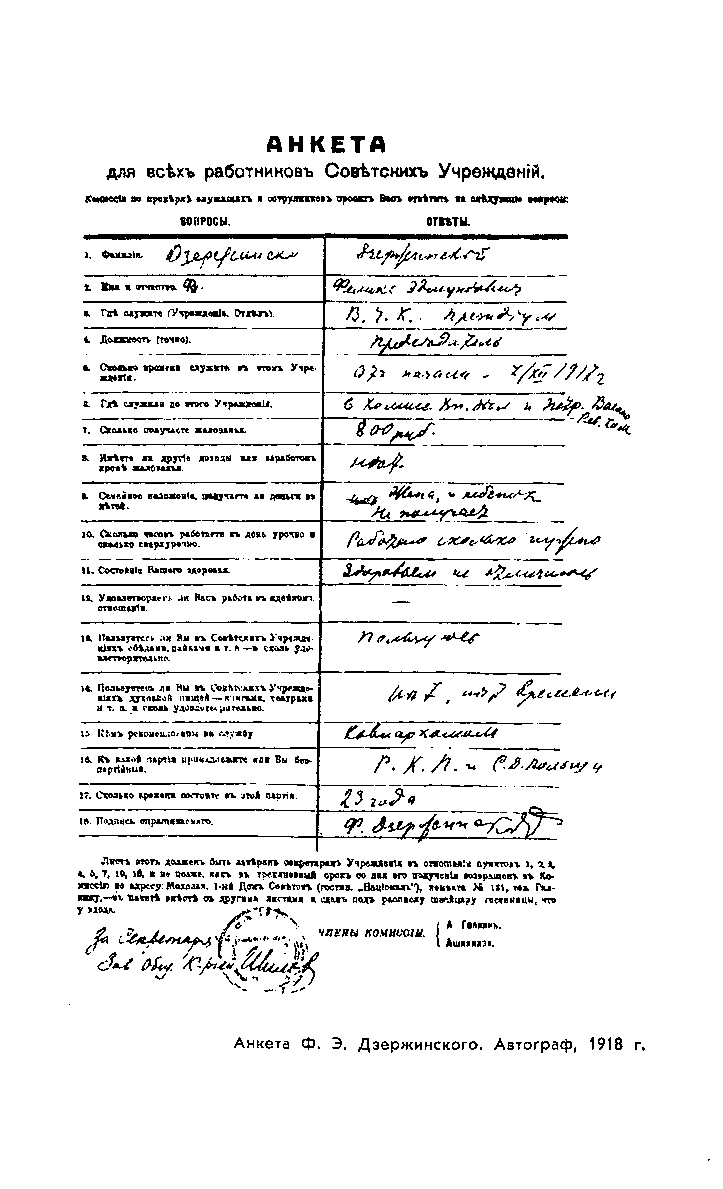 АНКЕТА
для всѣхъ работниковъ Совѣтскихъ Учрежденій.
Комиссія по провѣркѣ служащихъ и сотрудниковъ проситъ Васъ отвѣтить на слѣдующіе вопросы:
ВОПРОСЫ. ОТВѢТЫ.
1. Фамилія. Дзержински Дзержинской
2. Имя и отчество. Ф. Феликс Эдмундович
3. Гдѣ служите (Учрежденіе, Отдѣлъ). В. Ч. К. президиум
4. Должность (точно). председатель
5. Сколько времени служите въ этомъ Учре-
жденіи. От начала - 7/XII 1917 г
6. Гдѣ служили до этого Учрежденія. в Комисс. Вн. Дел и Петр. Военно
Рев. Ком
7. Сколько получаете жалованья. 800 руб.
8. Имѣете ли другіе доходы или заработокъ
кромѣ жалованья. нет.
9. Семейное положеніе, получаете ли деньги на
дѣтей. Жена, и ребенок
Не получает
10. Сколько часовъ работаете въ день урочно и
сколько сверхурочно. Работаю сколько нужно
11. Состояніе Вашего здоровья. Здоровьем не отличаюсь
12. Удовлетворяетъ ли Васъ работа въ идейномъ
отношеніи. —
13. Пользуетесь ли Вы въ Совѣтскихъ Учрежде-
ніяхъ обѣдами, пайками и т. п.—и сколь удо-
влетворительно. Пользуюсь
14. Пользуетесь ли Вы въ Совѣтскихъ Учрежде-
ніяхъ духовной пищей—книгами, театрами
и т. п. и сколь удовлетворительно. нет, нет времени
15. Кѣмъ рекомендованы на службу Совнаркомом
16. Къ какой партіи принадлежите или Вы без-
партійный. Р. К. П. и С. Д. Польши
17. Сколько времени состоите въ этой партіи. 23 года
18. Подпись опрашиваемаго. Ф. Дзержинский
Листъ этотъ долженъ быть завѣренъ секретаремъ Учрежденія въ отношеніи пунктовъ 1, 2, 3,
4, 5, 7, 10, 16, и не позже, какъ въ трехдневный срокъ со дня его полученія возвращенъ въ Ко-
миссію по адресу: Моховая, 1-ый Домъ Совѣтовъ (гостин. „Націоналъ"), комната № 131, тов. Гал-
кину,—въ пакетѣ вмѣстѣ съ другими листами и сданъ подъ расписку швейцару гостиницы, что
у входа.
За Секретаря
Зав Общ. К-рией
ЧЛЕНЫ КОМИССІИ. А Галкинъ.
Анкета Ф. Э. Дзержинского. Автограф, 1918 г.